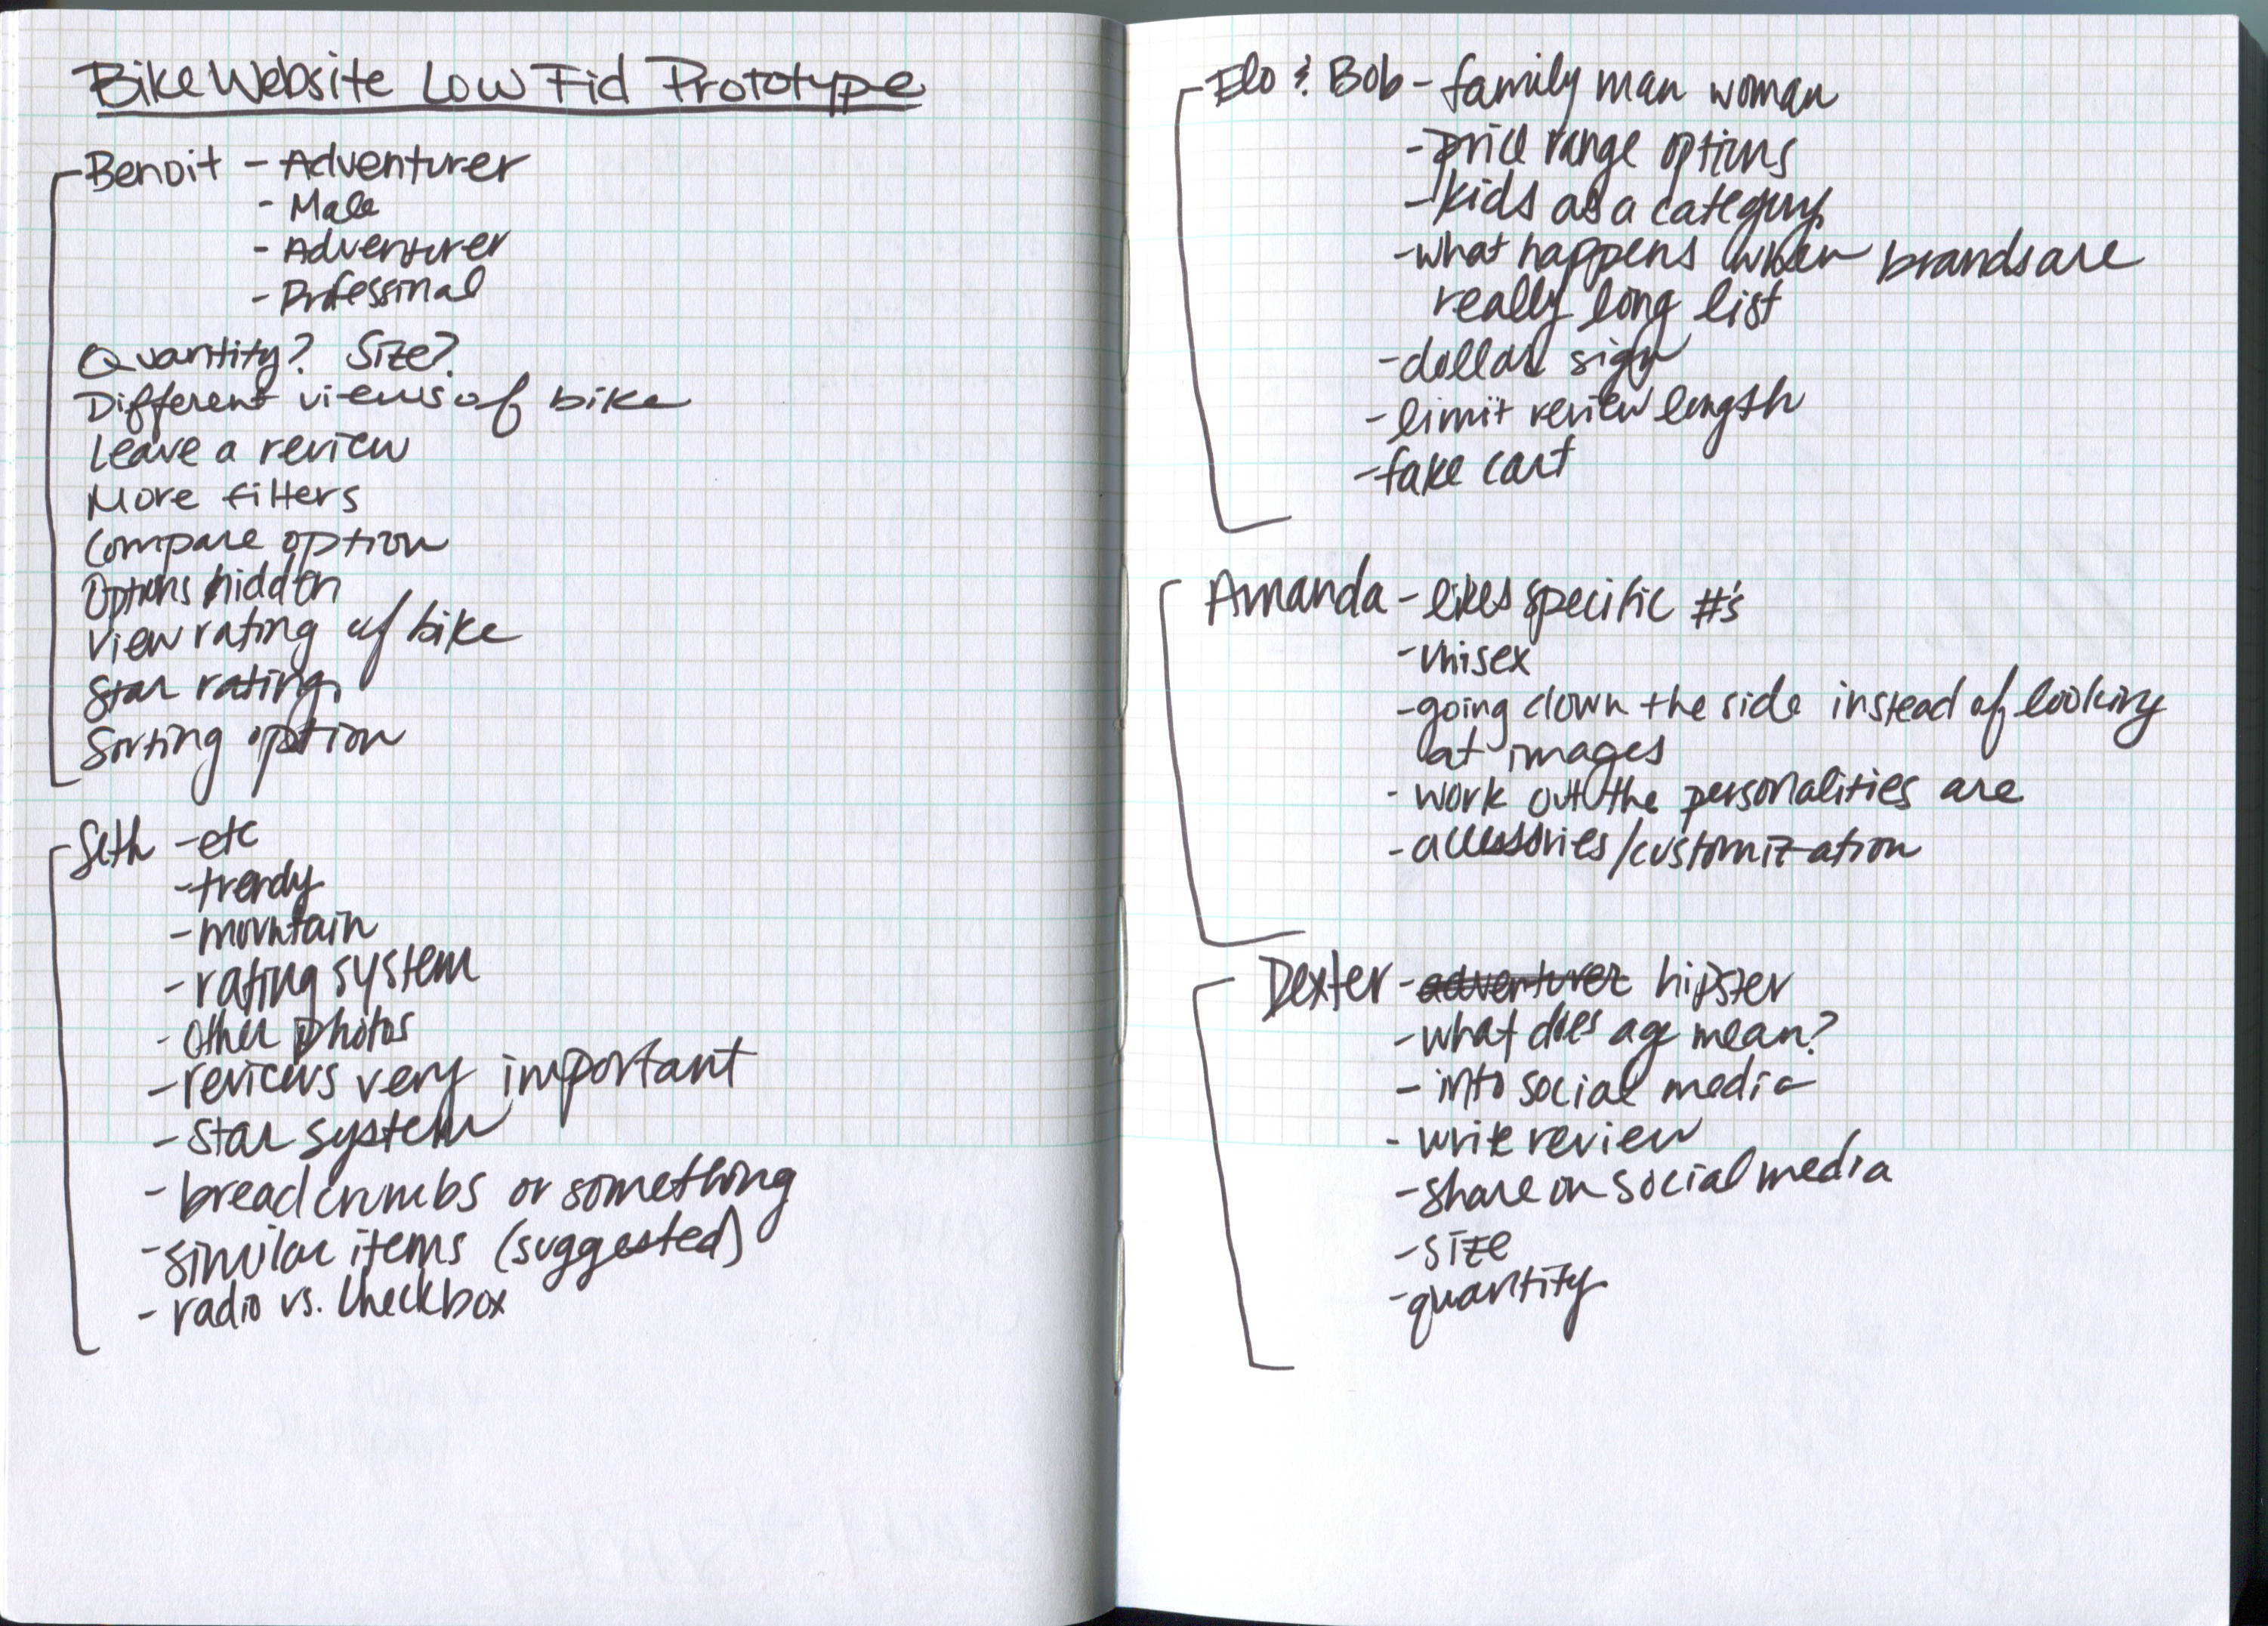 Bike Website Low Fid Prototype
Benoit - Adventurer
- Male
- Adventurer
- Professinal
Quantity? Size?
Different views of bike
Leave a review
More filters
Compare option
Options hidden
View rating of bike
Star rating
Sorting option
Seth - etc
- trendy
- mountain
- rating system
- other photos
- reviews very important
- star system
- breadcrumbs or something
- similar items (suggested)
- radio vs. checkbox
Elo & Bob - family man woman
- price range options
- kids as a category
- what happens when brands are
really long list
- dollar sign
- limit review length
- fake cart
Amanda - likes specific #'s
- unisex
- going down the side instead of looking
at images
- work out the personalities are
- accessories/customization
Dexter - adventurer hipster
- what does age mean?
- into social media
- write review
- share on social media
- size
- quantity